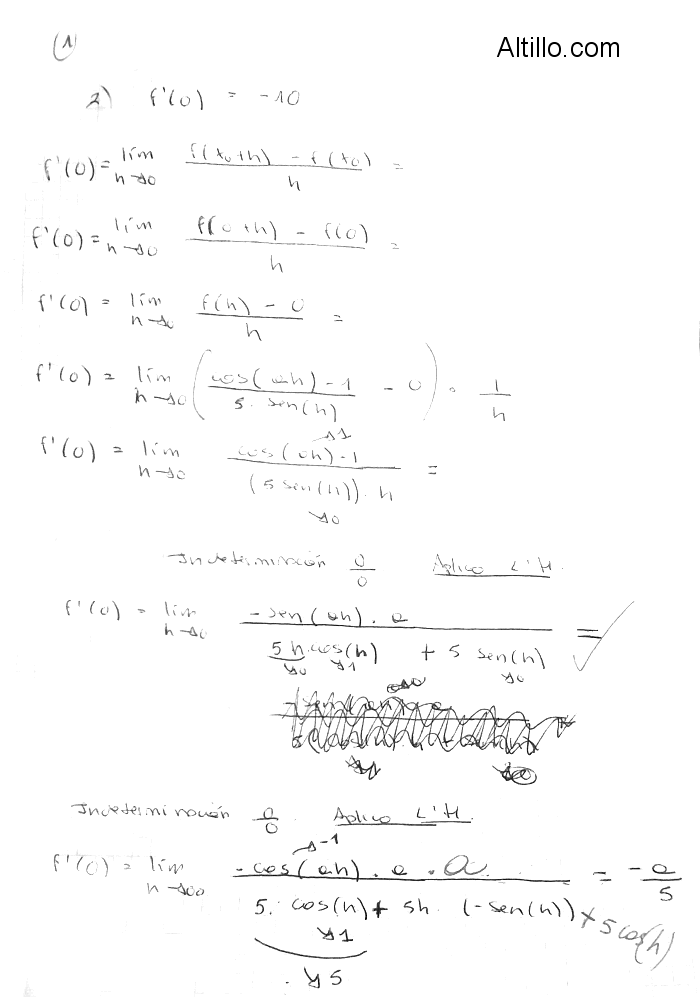 (1)
Altillo.com
2) f'(0) = -10
f'(0) = lím h→0 f(x₀+h) - f(x₀) / h =
f'(0) = lím h→0 f(0+h) - f(0) / h =
f'(0) = lím h→0 f(h) - 0 / h =
f'(0) = lím h→0 ( cos(ah) - 1 / 5. sen(h) - 0 ) . 1 / h
f'(0) = lím h→0 cos(ah) - 1 / (5 sen(h)) . h =
→1
→0
Indeterminación 0/0 Aplico L'H.
f'(0) = lím h→0 -sen(ah) . a / 5 h . cos(h) + 5 sen(h) = ✓
→0 →1 →0
Indeterminación 0/0 . Aplico L'H.
→-1
f'(0) = lím h→0 -cos(ah) . a . a / 5. cos(h) + 5h . (-sen(h)) + 5 cos(h) = -a/5
→1
→5